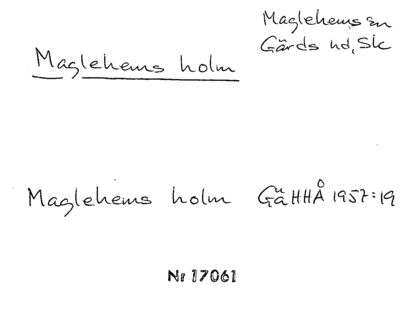 Maglehems sn
Gärds hd, Sk
Maglehems holm
Maglehems holm GäHHÅ 1957:19
Nr 17061